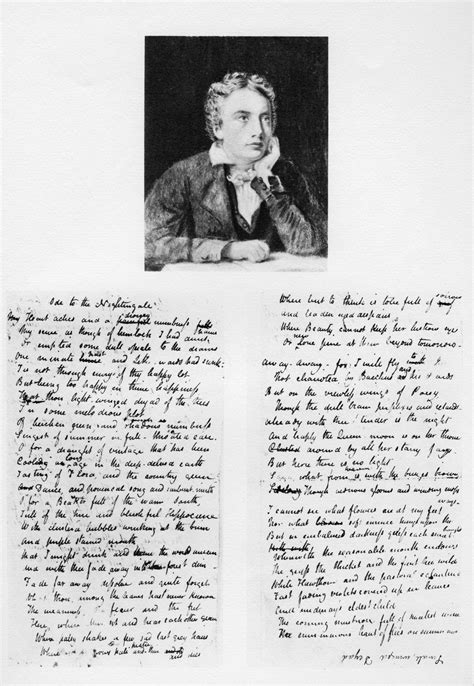 Ode to the Nightingale
My Heart aches and a drowsy numbness falls
My sense as though of hemlock I had drunk
Or emptied some dull opiate to the drains
One minute past and Lethe-wards had sunk
Tis not through envy of thy happy lot
But being too happy in thine happiness
That thou light winged dryad of the trees
In some melodious plot
Of beechen green, and shadows numberless
Singest of summer in full-throated ease.
O for a draught of vintage that has been
Cooling an age in the deep-delved earth
Tasting of Flora, and the country green
And Dance, and provencal song and sunburnt mirth
O for a Beaker full of the warm South
Full of the true and blushful Hippocrene
With cluster'd bubbles winking at the brim
And purple stained mouth
That I might drink and leave the world unseen
And with thee fade away into forest dim-
Fade far away dissolve and quite forget
What thou among the leaves hast never known
The weariness, the fever and the fret
Here, where men sit and hear each other groan
Where palsy shakes a few sad last grey hairs
Where youth pale and thin and dies
Where but to think is to be full of sorrow
and leaden eyed despairs
Where Beauty cannot keep her lustrous eyes
Or Love pine at them beyond tomorrow.
Away-away- for I will fly to thee
Not charioted by Bacchus and his Pards
But on the viewless wings of Poesy
Though the dull brain perplexes and retards
Already with thee! tender is the night
And haply the Queen moon is on her throne
Cluster'd around by all her starry fays-
But here there is no light
from is with the breezes blown
Through verdurous glooms and winding mossy ways
I cannot see what flowers are at my feet
Nor what soft incense hangs upon the
But in embalmed darkness guess each sweet
With which the seasonable month endows
The grass the thicket and the fruit tree wild
White Hawthorn and the pastoral eglantine
Fast fading violets cover'd up in leaves
And midmays eldest child
The coming muskrose full of
The murmurous haunt of flies on summer eves